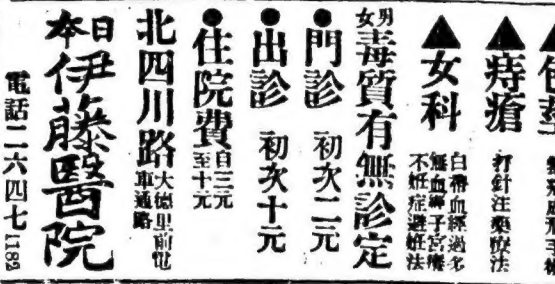 ▲痔瘡
打針注藥療法
▲女科
白帶血經過多
無血經子宮癢
不妊症避妊法
男女毒質有無診定
●門診 初次二元
●出診 初次十元
●住院費 自三元至十元
北四川路 大德里前電車通路
日本伊藤醫院
電話二六四七
1182